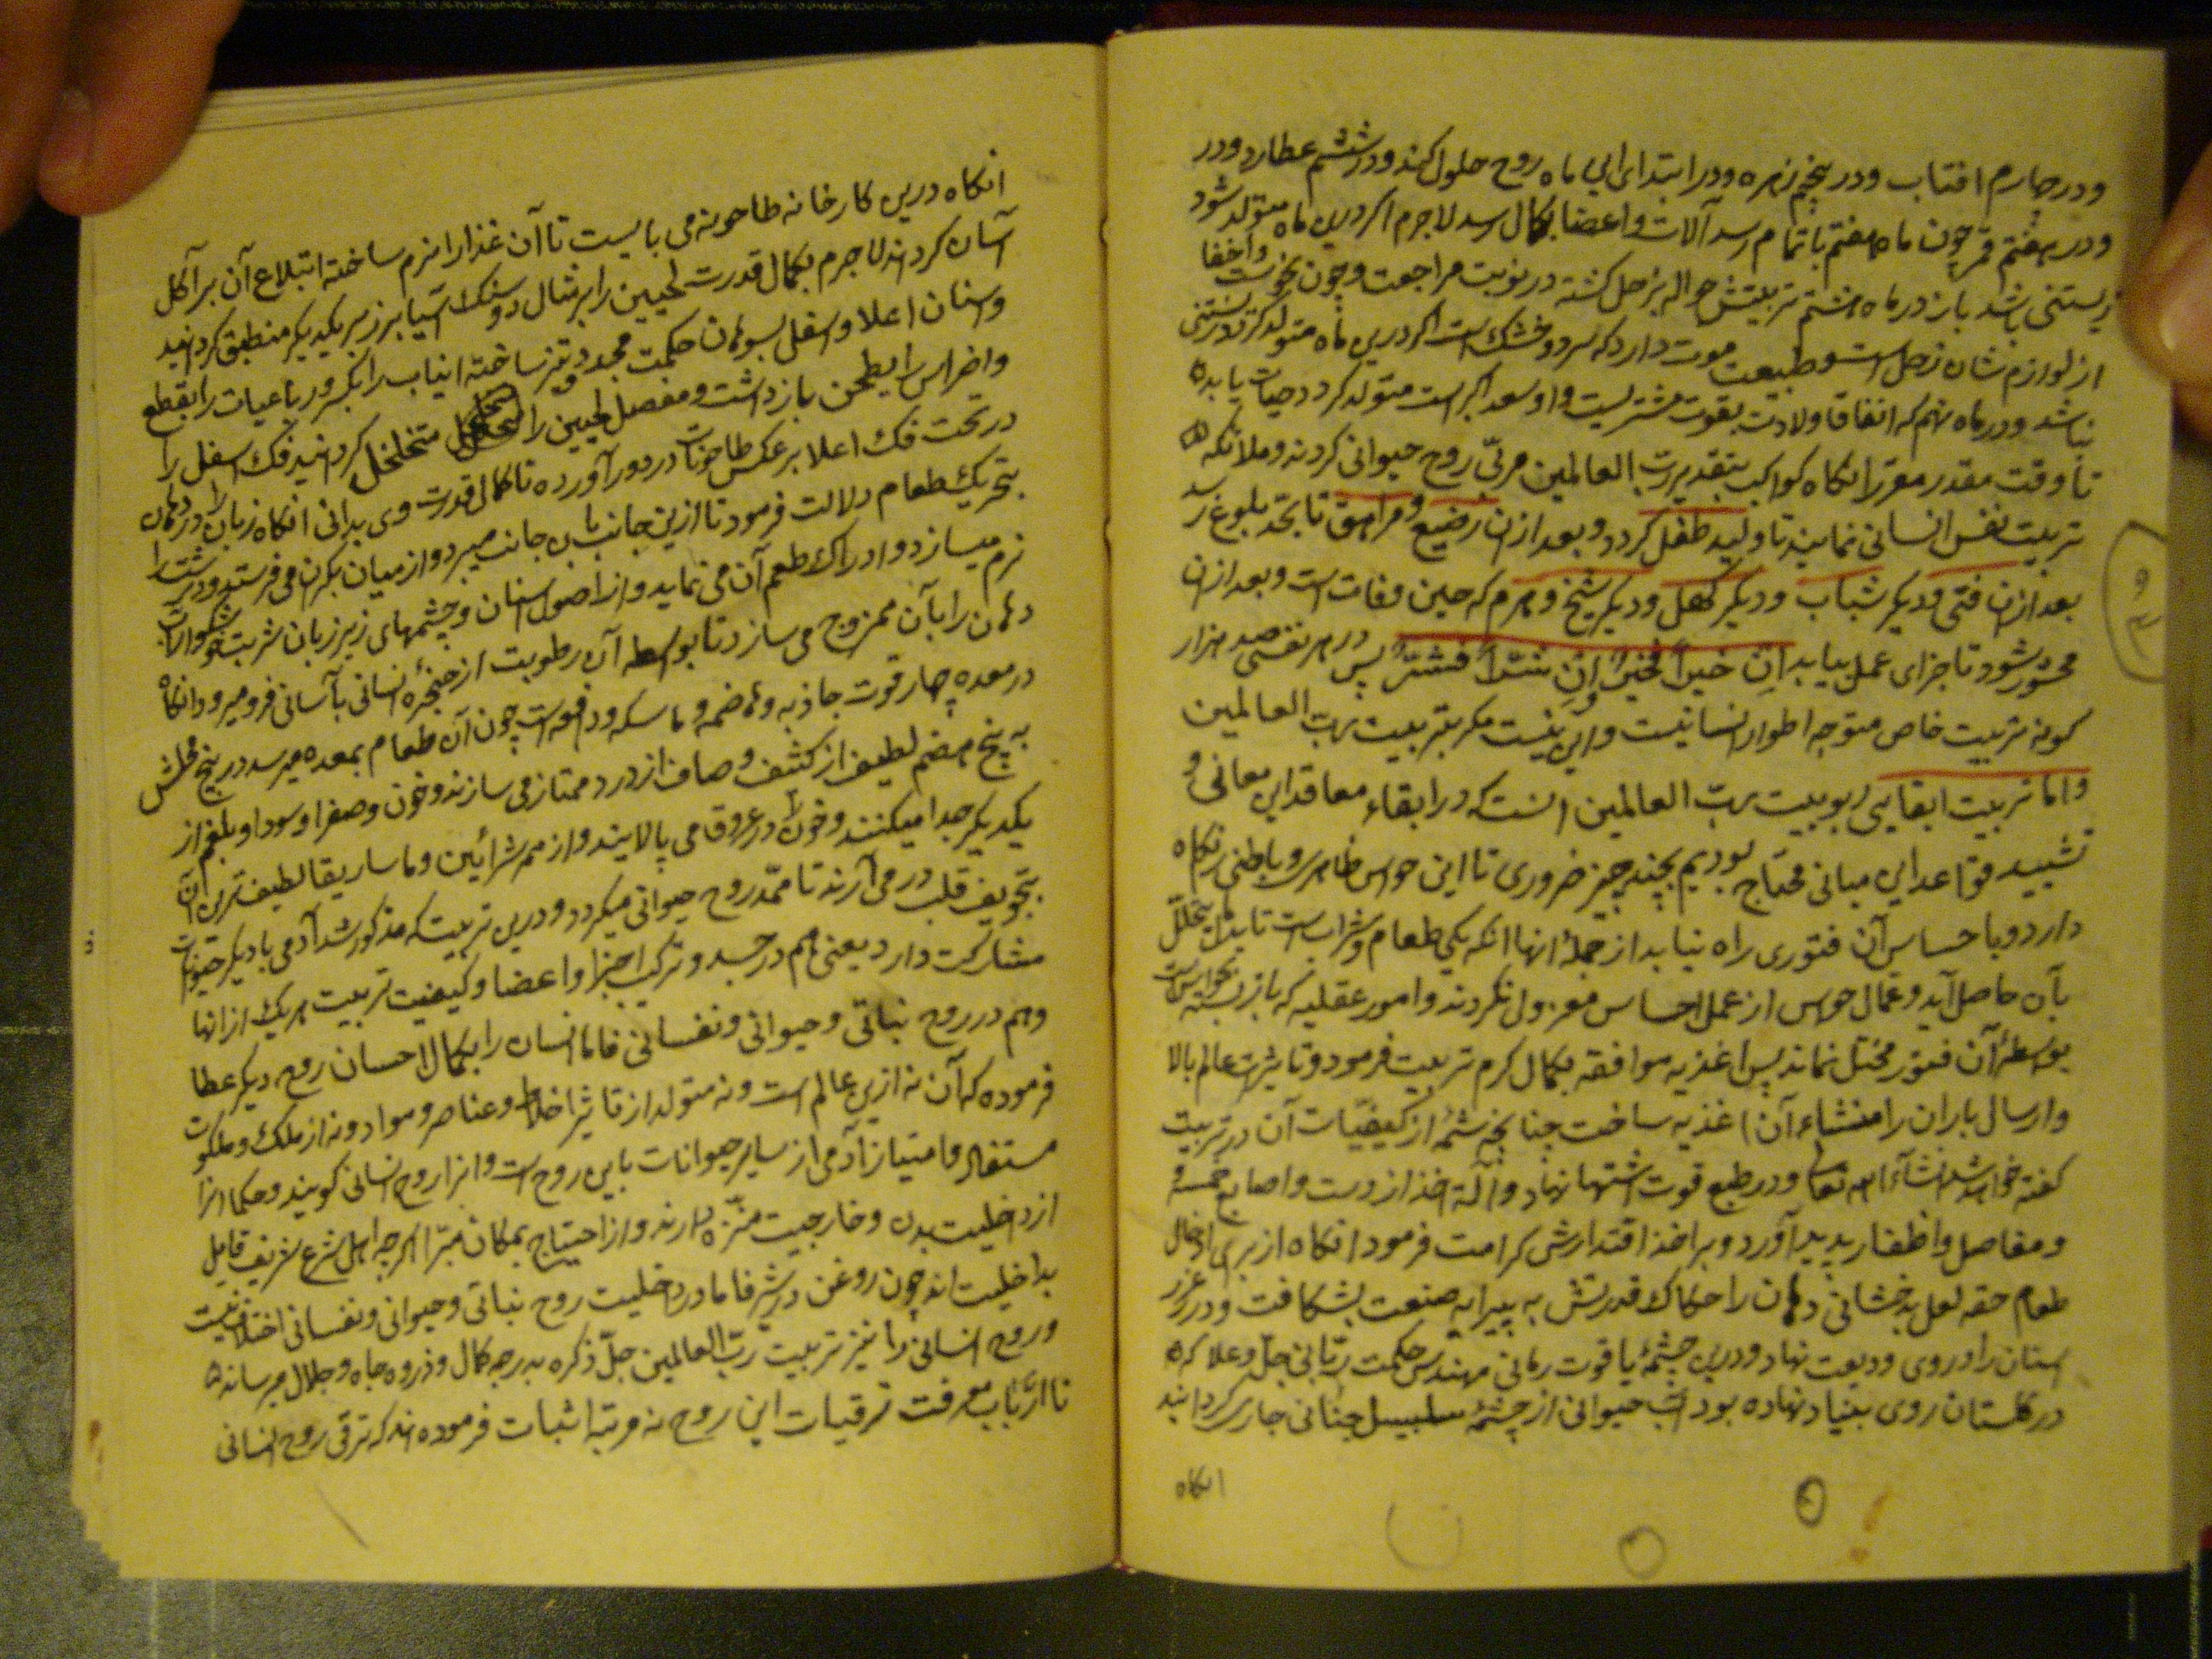 ودر چهارم افتاب ودر پنجم زهره ودر ابتدای این ماه روح حلول کند ودر ششم عطارد ودر
ودر هفتم قمر چون ماه هفتم باتمام رسد آلات واعضا بکمال رسد لاجرم اکر درین ماه متولد شود
زیستنی باشد باز در ماه هشتم تربیتش حواله بزحل کشته در نوبت مراجعت وچون نحوست واخفا
از لوازم شان زحل است وطبیعت موت دارد که سرد وخشک است اکر درین ماه متولد کردد زیستنی
نباشد ودر ماه نهم که اتفاقا ولادت بقوت مشتریست واو سعد اکبر است متولد کردد حیات یابد
تا وقت مقدر مقرر انکاه کواکب بتقدیر رب العالمین مربّی روح حیوانی کردند وملائکه
تربیت نفس انسانی نمایند تا ولید طفل کردد وبعد ازان رضیع ومراهق تا بحد بلوغ رسد
بعد ازان فتی ودیکر شباب ودیکر کهل ودیکر شیخ وهرم که حین وفات است وبعد ازان
محشور شود تا جزای عمل بیابد ان خیراً فخیرٌ وان شرّاً فشرٌّ پس در هر نفسی صد هزار
کونه تربیت خاص متوجه اطوار انسانیت واین نیست مکر بتربیت رب العالمین
واما تربیت ابقایی ربوبیت ربّ العالمین انست که در ابقاء معاقد این معانی و
تشیید قواعد این مبانی محتاج بودیم بچند چیز ضروری تا این حواس ظاهری وباطنی نکاه
دارد وباحساس آن فتوری راه نیابد از جملهٔ انها انکه یکی طعام وشراب است تا بدل یتحلّل
بآن حاصل آید وعمال حواس از عمل احساس معزول نکردند وامور عقلیه که باز بسته بحواس است
بواسطهٔ آن فتور مختل نماند پس اغذیه موافقه بکمال کرم تربیت فرمود وتاثیرات عالم بالا
وارسال باران را منشاء آن اغذیه ساخت چنانچه شمهٔ از کیفیّات آن در تربیت
کفته خواهد شد انشآء الله تعالی ودر طبع قوت اشتها نهاد وآلت اخذ از دست واصابع خمسه و
ومفاصل واظفار پدید آورد وبر اخذ اقتدارش کرامت فرمود انکاه از برای ادخال
طعام حقه لعل بدخشانی دهان را حکاک قدرتش به پیرایه صنعت بشکافت ودرر غرر
اسنان را در وی ودیعت نهاد ودرین چشمهٔ یاقوت رمانی مهندس حکمت ربّانی جلّ وعلا که
در کلستان روی بنیاد نهاده بود آب حیوانی از چشمهٔ سلسبیل جنانی جاری کردانید
انکاه
انکاه درین کارخانه طاحونه می بایست تا آن غذا را نرم ساخته ابتلاع آن بر آکل
آسان کردد لاجرم بکمال قدرت لحیین را بر مثال دو سنک آسیا بر زبر یکدیکر منطبق کردانید
واسنان اعلا واسفل بسوهان حکمت محدد وتیز ساخته انیاب را بکسر ورباعیات را بقطع
واضراس را بطحن بازداشت ومفصل لحیین را متخلخل کردانید فک اسفل را
در تحت فک اعلا بر عکس طاحونات در دور آورده تا کمال قدرت وی بدانی انکاه زبان را در دهان
بتحریک طعام دلالت فرمود تا ازین جانب بان جانب میبرد واز میان بکران می فرستد ودرشت را
نرم میسازد وادراک طعم آن می نماید واز اصول اسنان وچشمهای زیر زبان شربت خوشکوارات
دهان را بآن ممزوج می سازد تا بواسطه آن رطوبت از حنجرهٔ انسانی بآسانی فرو میرود وانکاه
در معده چهار قوت جاذبه وهاضمه وماسکه ودافعه است چون آن طعام بمعده میرسد در پنج محلش
به پنج هضم لطیف از کثیف وصاف از درد ممتاز می سازند وخون وصفرا وسودا وبلغم از
یکدیکر جدا میکنند وخون را در عروق می پالایند واز ممر شرائین وماساریقا لطیف ترین آن
بتجویف قلب در می آرند تا ممدّ روح حیوانی میکردد ودرین تربیت که مذکور شد آدمی با دیکر حیوانات
مشارکت دارد یعنی هم در جسد وترکیب اجزا واعضا وکیفیت تربیت هریک از انها
وهم در روح نباتی وحیوانی ونفسانی فاما انسان را بکمال احسان روح دیکر عطا
فرموده که آن نه ازین عالم است ونه متولد از تاثیر اخلاط وعناصر ومواد ونه از ملک وملکوت
مستفاد وامتیاز آدمی از سایر حیوانات باین روح است وانرا روح انسانی کویند وحکما انرا
از داخلیت بدن وخارجیت منزّه دارند واز احتیاج بمکان مبرّا اکرچه اهل شرع شریف قایل
بداخلیت اند چون روغن در شیر فاما در داخلیت روح نباتی وحیوانی ونفسانی اختلاف نیست
وروح انسانی را نیز تربیت ربّ العالمین جلّ ذکره بدرجه کمال وذروه جاه وجلال میرساند
تا ارباب معرفت ترقیات این روح نه مرتبه اثبات فرموده اند که ترقی روح انسانی